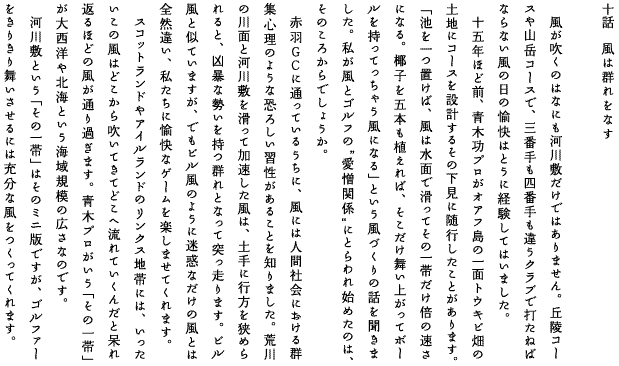 十話　風は群れをなす
風が吹くのはなにも河川敷だけではありません。丘陵コー
スや山岳コースで、三番手も四番手も違うクラブで打たねば
ならない風の日の愉快はとうに経験してはいました。
十五年ほど前、青木功プロがオアフ島の一面トウキビ畑の
土地にコースを設計するその下見に随行したことがあります。
「池を一つ置けば、風は水面で滑ってその一帯だけ倍の速さ
になる。椰子を五本も植えれば、そこだけ舞い上がってボー
ルを持ってっちゃう風になる」という風づくりの話を聞きま
した。私が風とゴルフの〝愛憎関係〟にとらわれ始めたのは、
そのころからでしょうか。
赤羽ＧＣに通っているうちに、風には人間社会における群
集心理のような恐ろしい習性があることを知りました。荒川
の川面と河川敷を滑って加速した風は、土手に行方を狭めら
れると、凶暴な勢いを持つ群れとなって突っ走ります。ビル
風と似ていますが、でもビル風のように迷惑なだけの風とは
全然違い、私たちに愉快なゲームを楽しませてくれます。
スコットランドやアイルランドのリンクス地帯には、いった
いこの風はどこから吹いてきてどこへ流れていくんだと呆れ
返るほどの風が通り過ぎます。青木プロがいう「その一帯」
が大西洋や北海という海域規模の広さなのです。
河川敷という「その一帯」はそのミニ版ですが、ゴルファー
をきりきり舞いさせるには充分な風をつくってくれます。